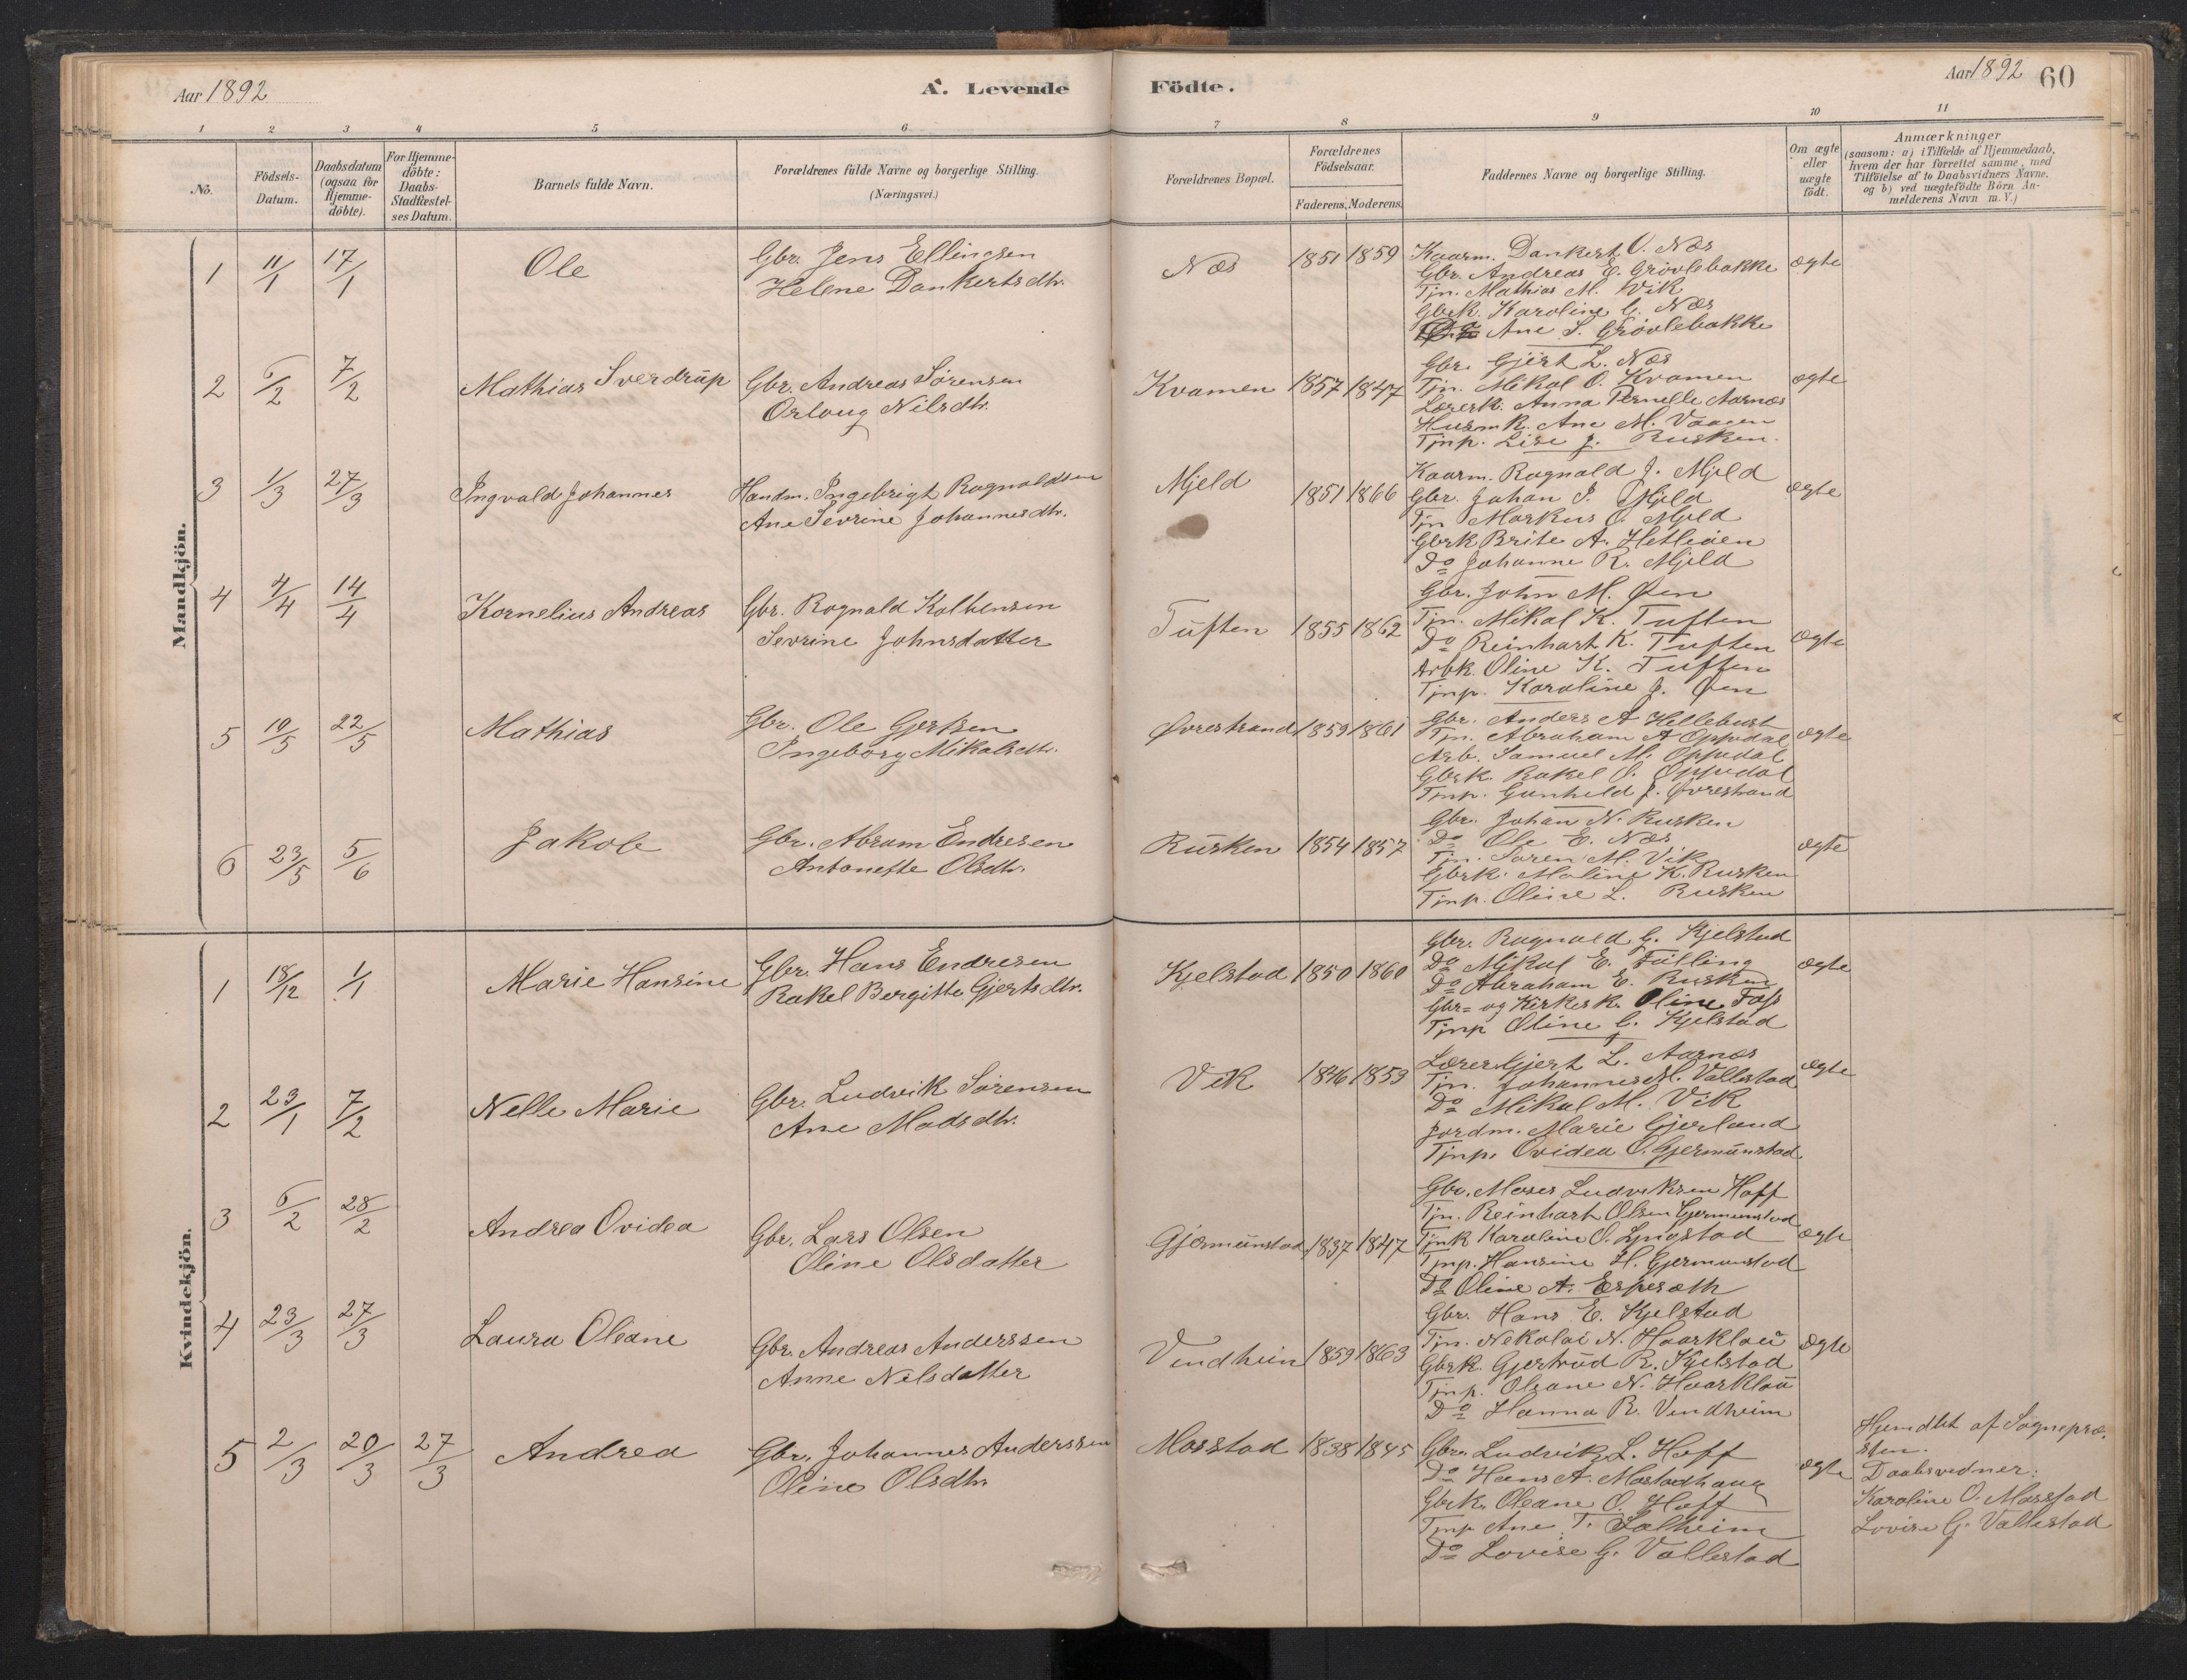 Aar 1892 A. Levende Födte. Aar 1892 60
1 2 3 4 5 6 7 8 9 10 11
No.
Födsels-Datum.
Daabsdatum (ogsaa för Hjemme-döbte).
For Hjemme-döbte: Daabs-Stadfæstel-ses Datum.
Barnets fulde Navn.
Forældrenes fulde Navne og borgerlige Stilling.
(Næringsvei.)
Forældrenes Bopæl.
Forældrenes Födselsaar.
Faderens. Moderens.
Faddernes Navne og borgerlige Stilling.
Om ægte eller uægte födt.
Anmærkninger
(saasom: a) i Tilfælde af Hjemmedaab,
hvem der har forrettet samme, med
Tilföielse af to Daabsvidners Navne,
og b) ved uægtefödte Börn An-
melderens Navn m. V.)
Mandkjön.
1 11/1 17/1 Ole
Gbr. Jens Ellingsen
Helene Dankertsdtr.
Næs 1851 1859
Kaarm. Dankert O. Næs
Gbr. Andreas E. Grövlebakke
Tjn. Mathias M. Vik
Gbrk. Karoline G. Næs
Ane S. Grövlebakke
ægte
2 6/2 7/2 Mathias Sverdrup
Gbr. Andreas Sörensen
Orloug Nilsdtr.
Kvamen 1857 1847
Gbr. Gjert L. Næs
Tjn. Mikal O. Kvamen
Lærerk. Anna Pernelle Aarnæs
Husmk. Ane M. Vaagen
Tjnp. Lise J. Rusken.
ægte
3 1/3 27/3 Ingvald Johannes
Handm. Ingebrigt Ragnaldsen
Ane Sevrine Johannesdtr.
Mjeld 1851 1866
Kaarm. Ragnald J. Mjeld
Gbr. Johan I. Mjeld
Tjn Markus O. Mjeld
Gbrk Brite A. Hetleöen
Do Johanne R. Mjeld
ægte
4 4/4 14/4 Kornelius Andreas
Gbr. Rognald Kolbensen
Sevrine Johnsdatter
Tuften 1855 1862
Gbr. John M. Øen
Tjn. Mikal K. Tuften
Do Reinhart K. Tuften
Arbk. Oline K. Tuften
Tjnp. Karoline J. Øen
ægte
5 10/5 22/5 Mathias
Gbr. Ole Gjertsen
Ingeborg Mikalsdtr.
Øvrestrand 1859 1861
Gbr. Anders A Hellebust
Tjn. Abraham A Oppedal
Arb. Samuel M. Oppedal
Gbrk. Rakel O. Oppedal
Tjnp. Gunhild J. Øvrestrand
ægte
6 23/5 5/6 Jakob
Gbr. Abram Endresen
Antonette Olsdtr.
Rusken 1854 1857
Gbr. Johan N. Rusken
Do Ole E. Næs
Tjn. Sören M. Vik
Gbrk. Maline K. Rusken
Tjnp. Oline L. Rusken
ægte
Kvindekjön.
1 18/12 1/1 Marie Hansine
Gbr. Hans Endresen
Rakel Bergitte Gjertsdtr.
Kjelstad 1850 1860
Gbr. Ragnald G. Kjelstad
Do Mikal E. Tülling
Do Abraham E. Rusken
Gbr= og Kirkesk. Oline Foss
Tjnp Oline G. Kjelstad
ægte
2 23/1 7/2 Nelle Marie
Gbr. Ludvik Sörensen
Ane Madsdtr.
Vik 1846 1853
Lærer Gjert L. Aarnæs
Tjn. Johannes M. Vallestad
Do Mikal M. Vik
Jordm. Marie Gjerland
Tjnp. Ovidea O. Gjermunstad.
ægte
3 6/2 28/2 Andrea Ovidea
Gbr. Lars Olsen
Oline Olsdatter
Gjermunstad 1837 1847
Gbr. Moses Ludviksen Hoff
Tjn. Reinhart Olsen Gjermunstad
Tjnk Karoline O. Lyngstad
Tjnp. Hansine H. Gjermunstad
Do Oline A. Espesæth
ægte
4 23/3 27/3 Laura Oleane
Gbr. Andreas Anderssen
Anne Nilsdatter
Vindheim 1859 1863
Gbr. Hans E. Kjelstad
Tjn. Nekolai N. Haarklau
Gbrk. Gjertrud R. Kjelstad
Tjnp. Oleane N. Haarklau
Do Hanna R. Vindheim
ægte
5 2/3 20/3 27/3 Andrea
Gbr. Johannes Anderssen
Oline Olsdtr.
Masstad 1838 1845
Gbr. Ludvik L. Hoff
Do Hans A. Mastadhaug
Gbrk. Oleane O. Hoff
Tjnp Ane T. Solheim
Do Lovise G. Vallestad
ægte
Hjemdbt af Sognepræ-
sten.
Daabsvidner:
Karoline O. Masstad
Lovise G. Vallestad